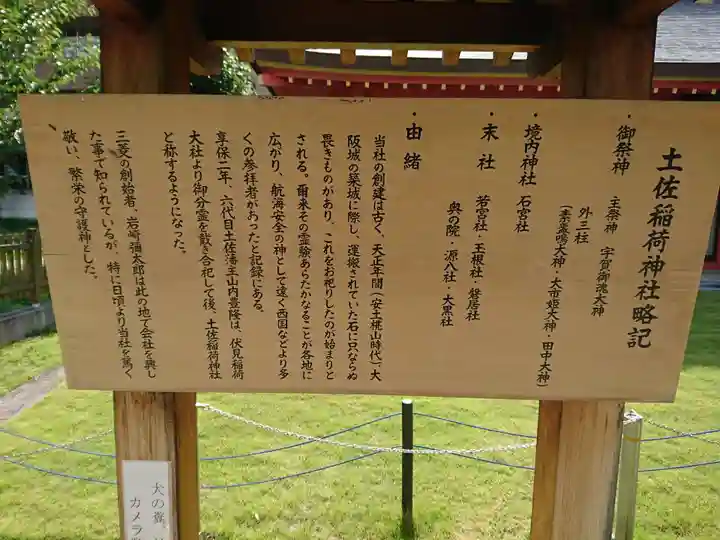 土佐稲荷神社略記
・御祭神 主祭神 宇賀御魂大神
外三柱
(素盞嗚大神・大市姫大神・田中大神)
・境内神社 石宮社
・末社 若宮社・玉根社・磐居社
奥の院・源八社・大黒社
・由緒
当社の創建は古く、天正年間(安土桃山時代)、大
阪城の築城に際し、運搬されていた石に只ならぬ
畏きものがあり、これをお祀りしたのが始まりと
される。爾来その霊験あらたかなることが各地に
広がり、航海安全の神として遠く西国などより多
くの参拝者があったと記録にある。
享保二年、六代目土佐藩主山内豊隆は、伏見稲荷
大社より御分霊を戴き合祀して後、土佐稲荷神社
と称するようになった。
三菱の創始者、岩崎彌太郎は此の地で会社を興し
た事で知られているが、特に日頃より当社を篤く
敬い、繁栄の守護神とした。
犬の糞、
カメラ